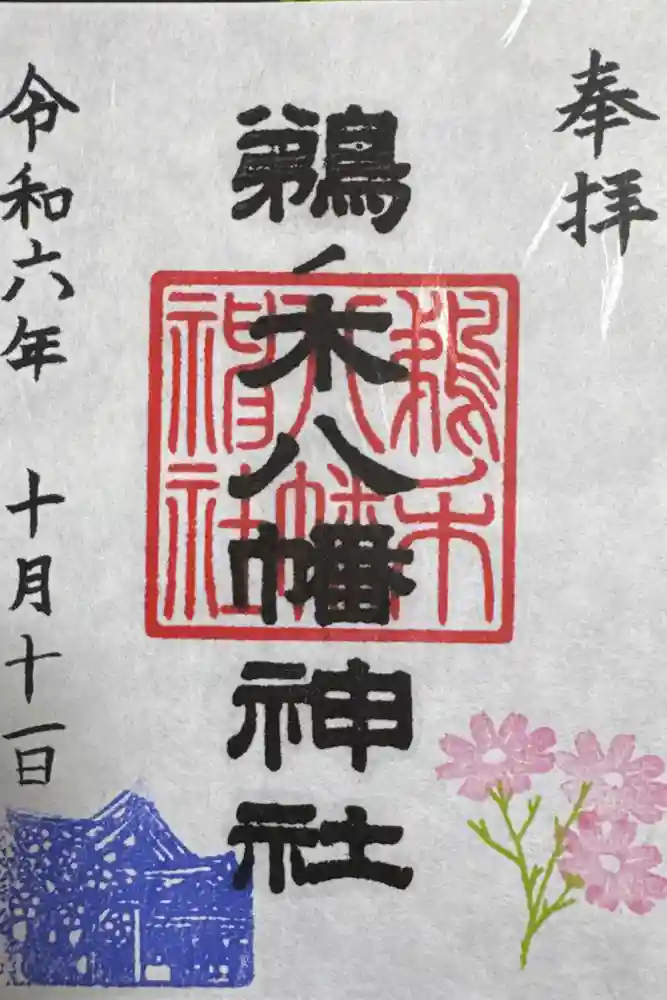 奉拝
鵜ノ木八幡神社
鵜木
八幡
神社
令和六年 十月十一日